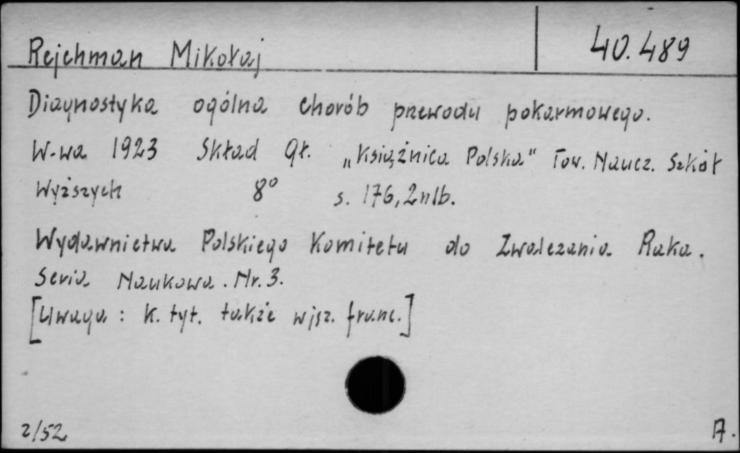 Rejchman Mikołaj 40.489
Diagnostyka ogólna chorób przewodu pokarmowego.
W-wa 1923 Skład Gł. „Książnica Polska" Tow. Naucz. Szkół
Wyższych 8° s. 176, 2 nlb.
Wydawnictwa Polskiego Komitetu do Zwalczania Raka.
Seria Naukowa. Nr. 3.
[Uwaga : k. tyt. także w jęz. franc.]
2/52 A.